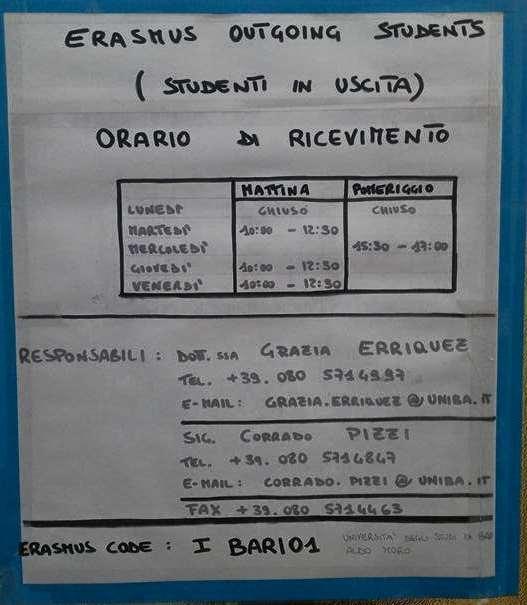 ERASMUS OUTGOING STUDENTS
( STUDENTI IN USCITA)
ORARIO DI RICEVIMENTO
MATTINA POMERIGGIO
LUNEDI' CHIUSO CHIUSO
MARTEDI' 10:00 - 12:30
MERCOLEDI' 15:30 - 17:00
GIOVEDI' 10:00 - 12:30
VENERDI' 10:00 - 12:30
RESPONSABILI : DOTT.SSA GRAZIA ERRIQUEZ
TEL. +39. 080 5714997
E-MAIL: GRAZIA.ERRIQUEZ@UNIBA.IT
SIG. CORRADO PIZZI
TEL. +39. 080 5714847
E-MAIL: CORRADO.PIZZI@UNIBA.IT
FAX +39.080 5714463
ERASMUS CODE : I BARI01
UNIVERSITA' DEGLI STUDI DI BARI
ALDO MORO